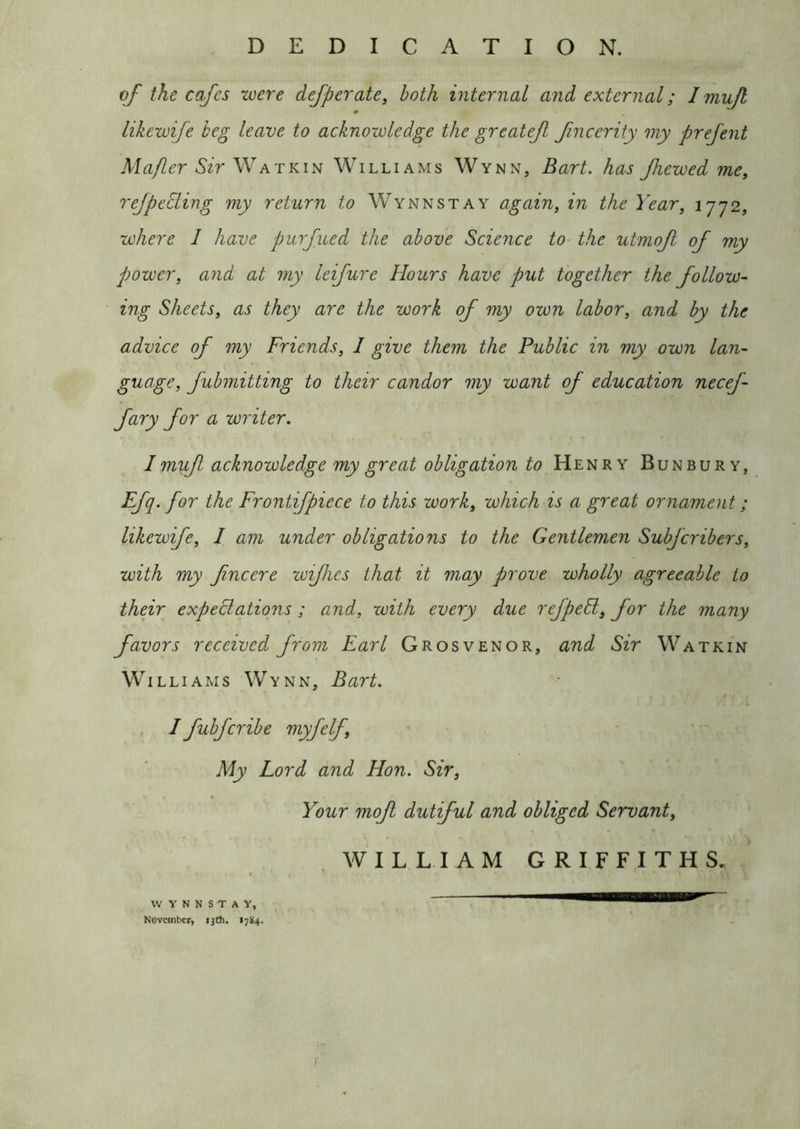 DEDICATION.
of the caſes were deſperate, both internal and external; I muſt
likewiſe beg leave to acknowledge the greateſt ſincerity my preſent
Maſter Sir WATKIN WILLIAMS WYNN, Bart. has ſhewed me,
reſpecting my return to WYNNSTAY again, in the Year, 1772,
where I have purſued the above Science to the utmoſt of my
power, and at my leiſure Hours have put together the follow-
ing Sheets, as they are the work of my own labor, and by the
advice of my Friends, I give them the Public in my own lan-
guage, ſubmitting to their candor my want of education neceſ-
ſary for a writer.
I muſt acknowledge my great obligation to HENRY BUNBURY,
Eſq. for the Frontiſpiece to this work, which is a great ornament;
likewiſe, I am under obligations to the Gentlemen Subſcribers,
with my ſincere wiſhes that it may prove wholly agreeable to
their expectations; and, with every due reſpect, for the many
favors received from Earl GROSVENOR, and Sir WATKIN
WILLIAMS WYNN, Bart.
I ſubſcribe myſelf,
My Lord and Hon. Sir,
Your moſt dutiful and obliged Servant,
WILLIAM GRIFFITHS.
WYNNSTAY,
November, 13th. 1784.